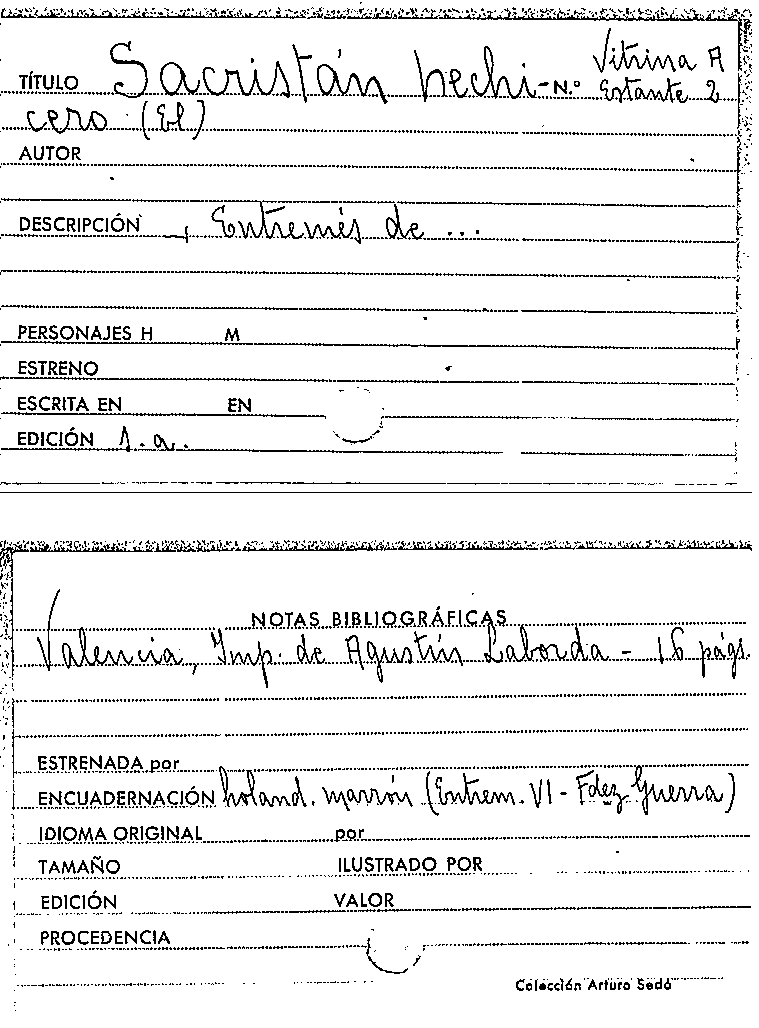 TÍTULO Sacristán hechi- N.º Vitrina A
Estante 2
cero (El)
AUTOR
DESCRIPCIÓN , Entremés de ...
PERSONAJES H M
ESTRENO
ESCRITA EN EN
EDICIÓN s.a.
NOTAS BIBLIOGRÁFICAS
Valencia, Imp. de Agustín Laborda - 16 págs.
ESTRENADA por
ENCUADERNACIÓN holand. marrón (Entrem. VI - Fdez Guerra)
IDIOMA ORIGINAL por
TAMAÑO ILUSTRADO POR
EDICIÓN VALOR
PROCEDENCIA
Colección Arturo Sedó